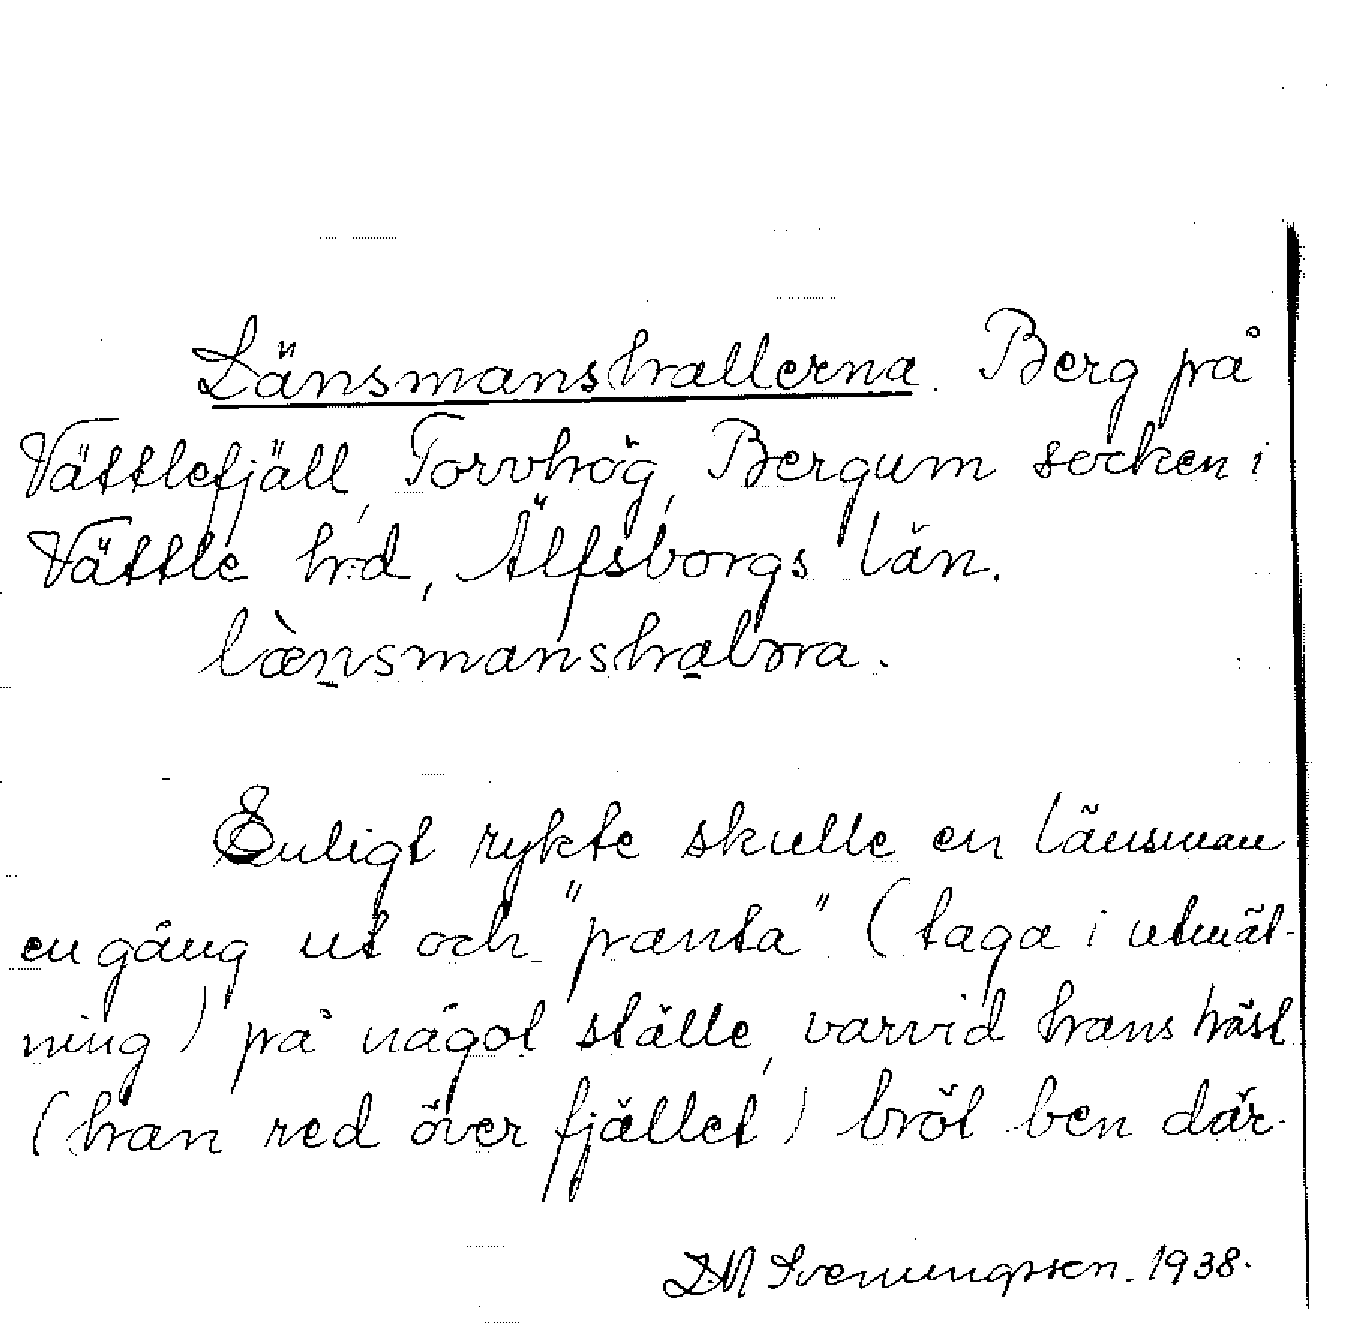 Länsmanshallerna. Berg på
Vättlefjäll, Torvhög, Bergum socken i
Vättle hrd, Älfsborgs län.
lænsmanshalvra.
Enligt rykte skulle en länsman
en gång ut och "panta" (taga i utmät-
ning) på något ställe, varvid hans häst
(han red över fjället) bröt ben där.
Svenungsson. 1938.